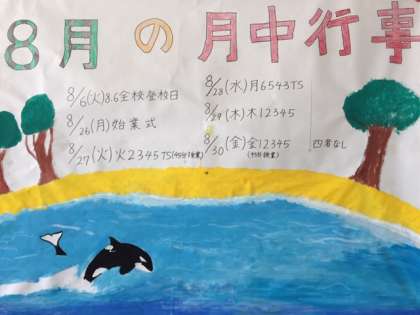 8月の月中行事
8/6(火)8.6全校登校日
8/26(月)始業式
8/27(火)火2345TS(45分授業)
8/28(水)月6543TS
8/29(木)木12345
8/30(金)金12345
(45分授業)
四者なし